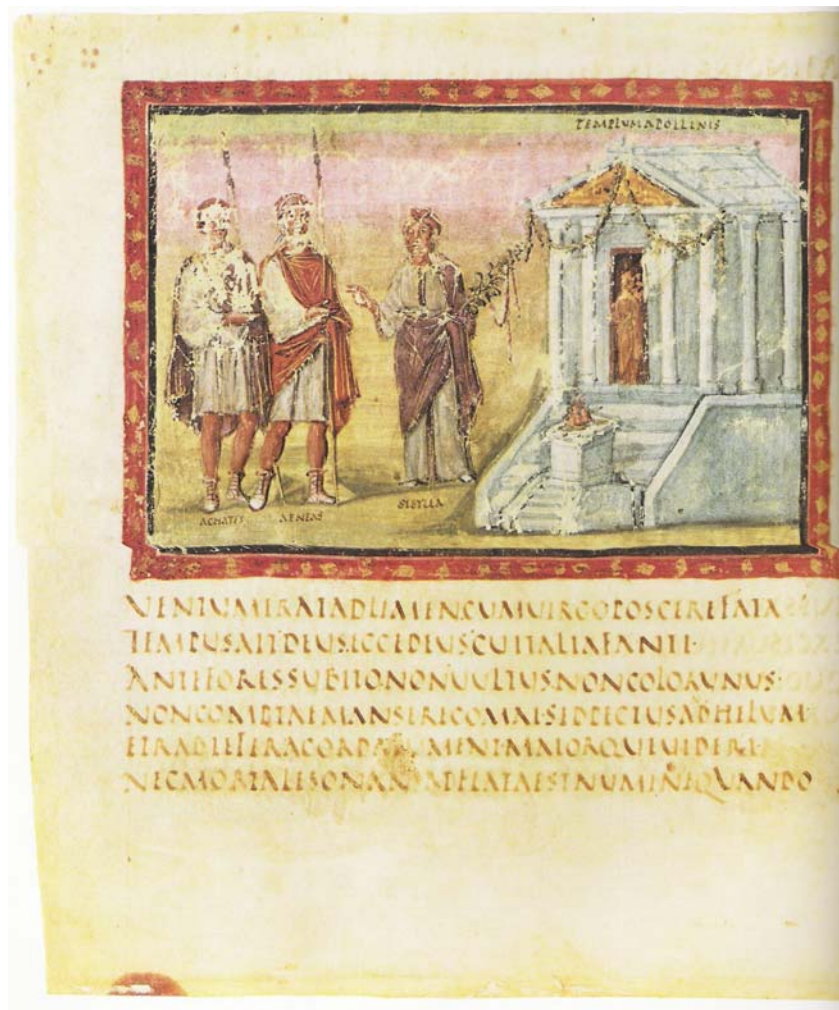 TEMPLUMAPOLLINIS
ACHATES AENEAS SIBYLLA
UENTUMERATADLIMENCUMUIRGOPOSCEREFATA
TEMPUSAITDEUSECCEDEUSCUITALIAFANTI·
ANTEFORESSUBITONONUULTUSNONCOLORUNUS·
NONCOMPTAEMANSERECOMAE·SEDPECTUSANHELUM
ETRABIEFERACORDATUMENTMAIORQUEUIDERI·
NECMORTALESONANSADFLATAESTNUMINEQUANDO